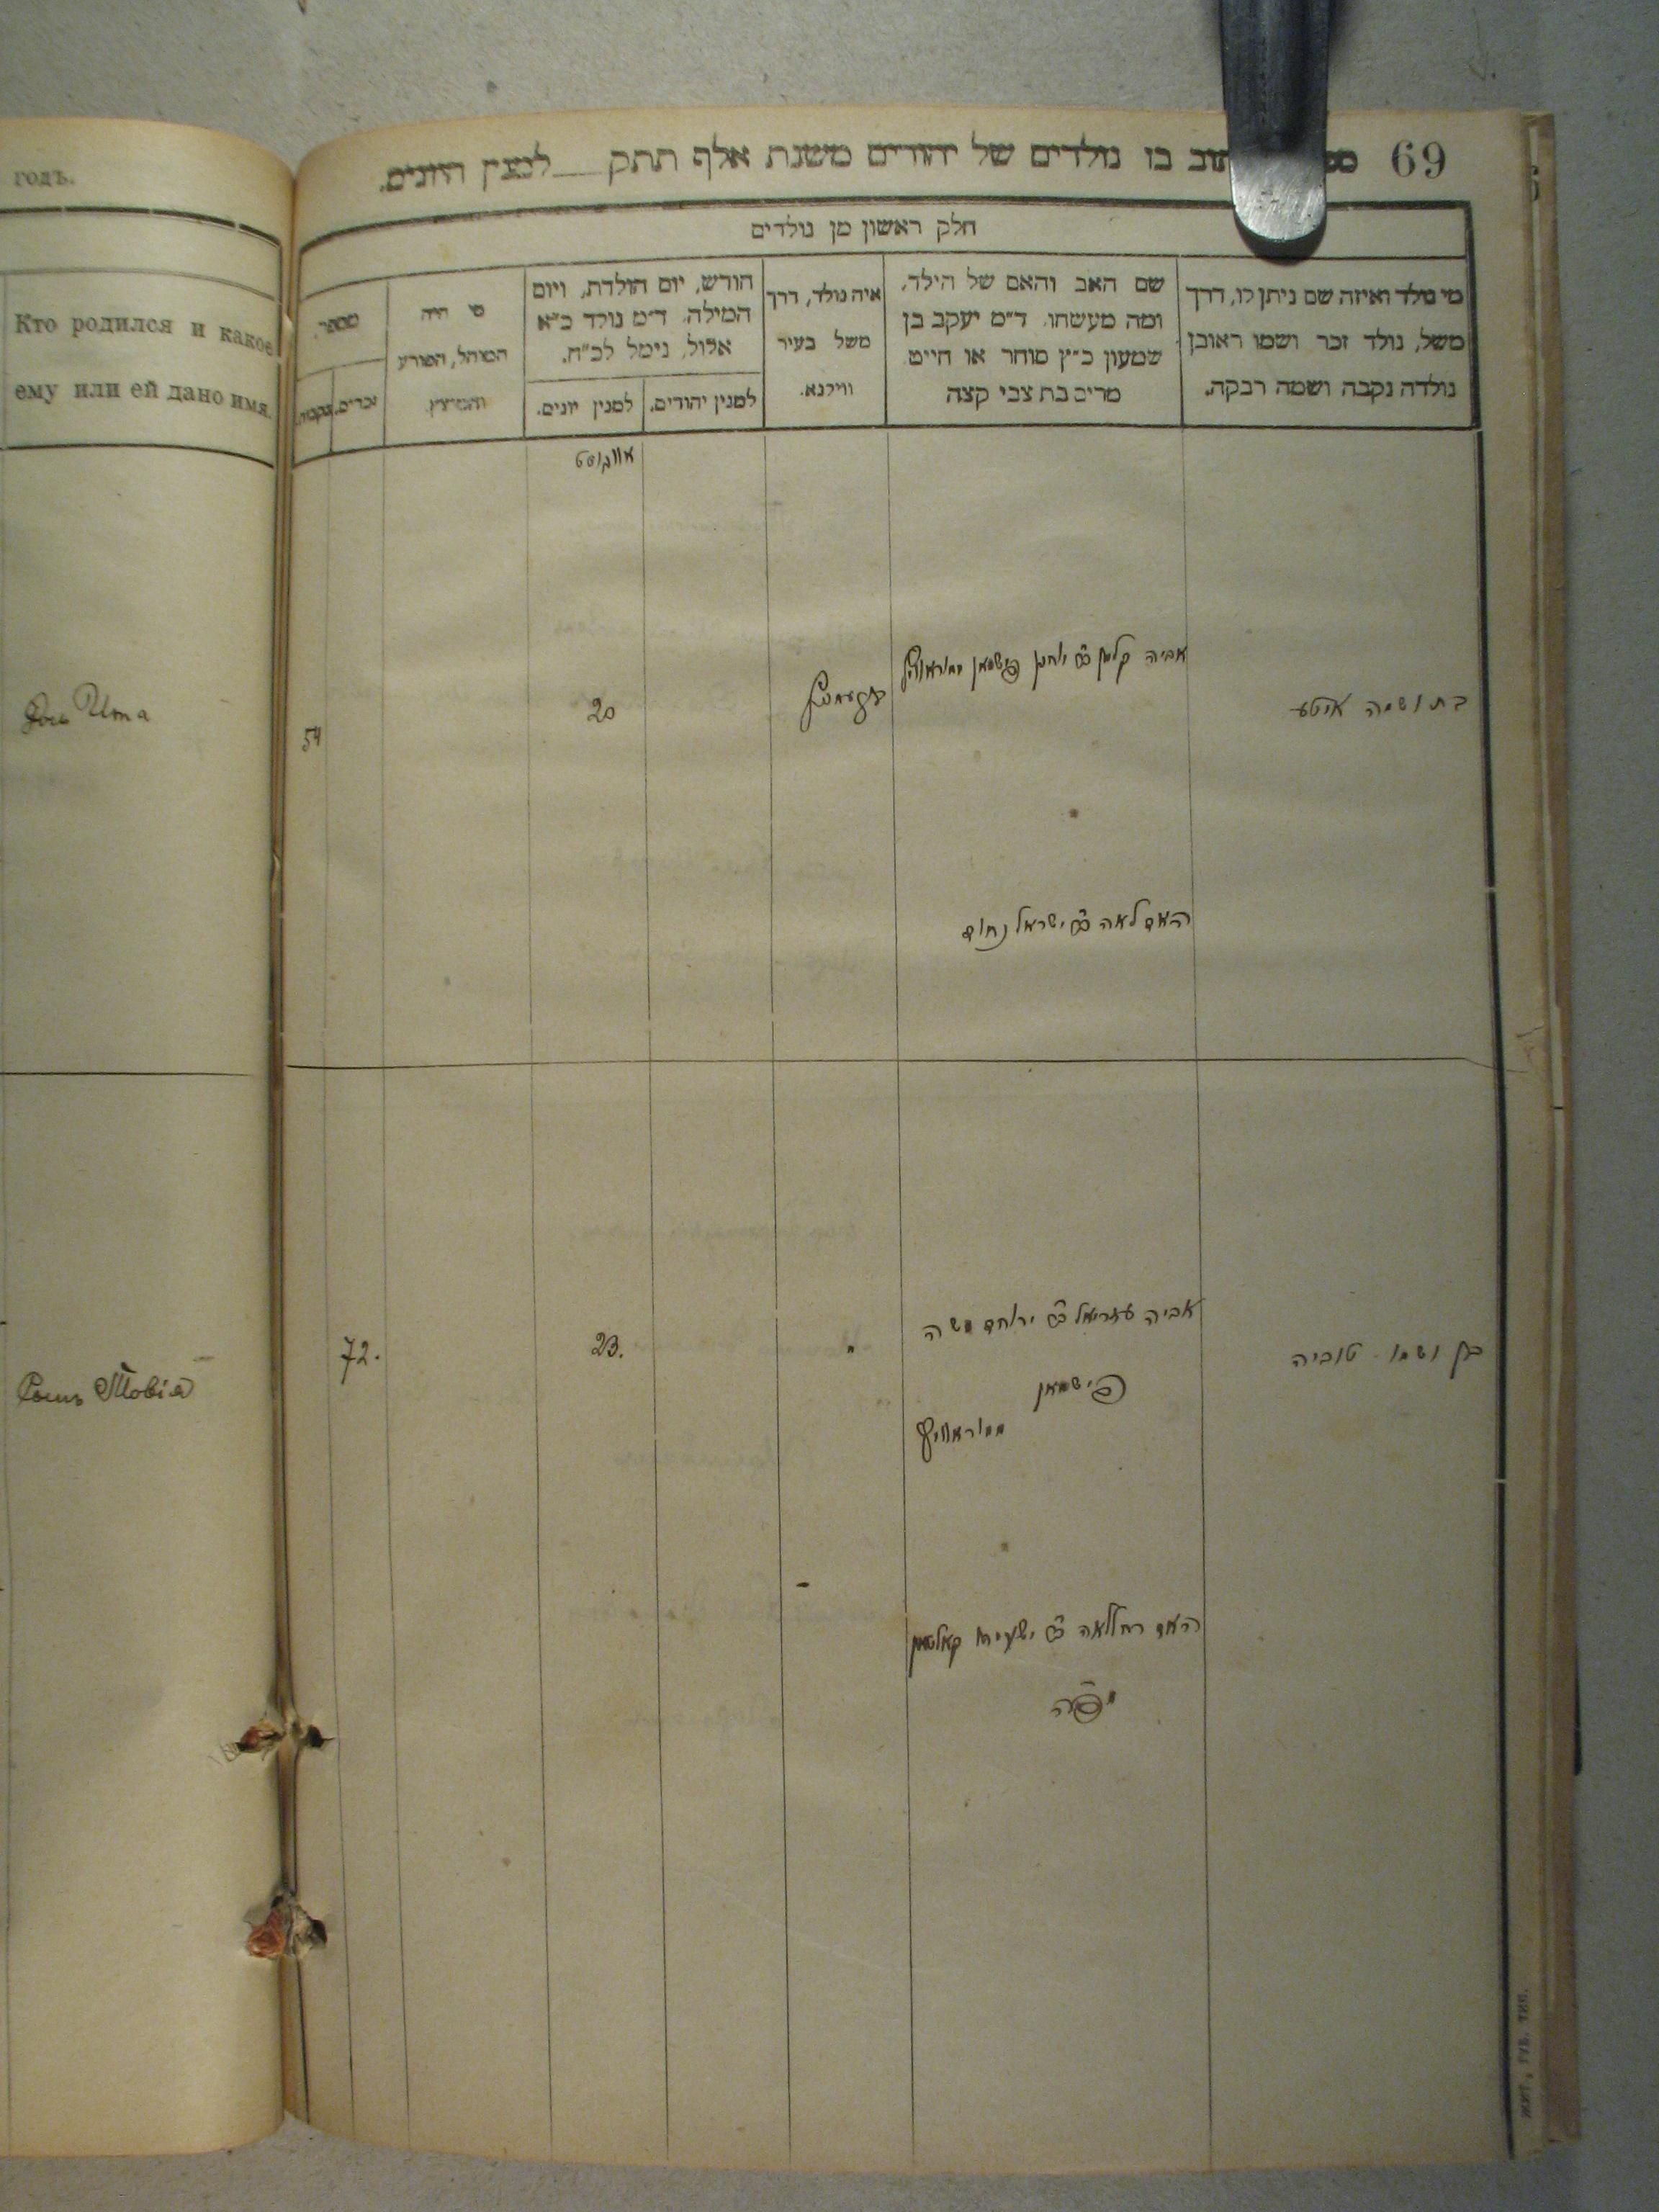 годъ.
Кто родился и какое
ему или ей дано имя.
Ита
Товія
69
תוב בו נולדים של יהודים משנת אלף תתק למנין היונים.
חלק ראשון מן נולדים
מי נולד ואיזה שם ניתן לו, דרך
משל, נולד זכר ושמו ראובן
נולדה נקבה ושמה רבקה.
שם האב והאם של הילד,
ומה מעשהו. ד״מ יעקב בן
שמעון כ״ץ סוחר או חייט
מרים בת צבי קצה
איה נולד, דרך
משל בעיר
ווילנא.
חודש, יום הולדת, ויום
המילה. ד״מ נולד כ״א
אלול, נימל לכ״ח.
למנין יהודים.
למנין יונים.
מי היה
המוהל, הפורע
והמוצץ
מספר.
זכרים.
נקבות.
אווגוסט
בת ושמה איטע
אביה קלמן ב״ר יוחנן פישמאן
האם לאה ב״ר ישראל נחום
20
54
בן ושמו טוביה
אביה עזריאל ב״ר ירוחם משה
פישמאן
האם רחל לאה ב״ר ישעיה
"
23.
72.
ЖИТ., ГУБ. ТИП.